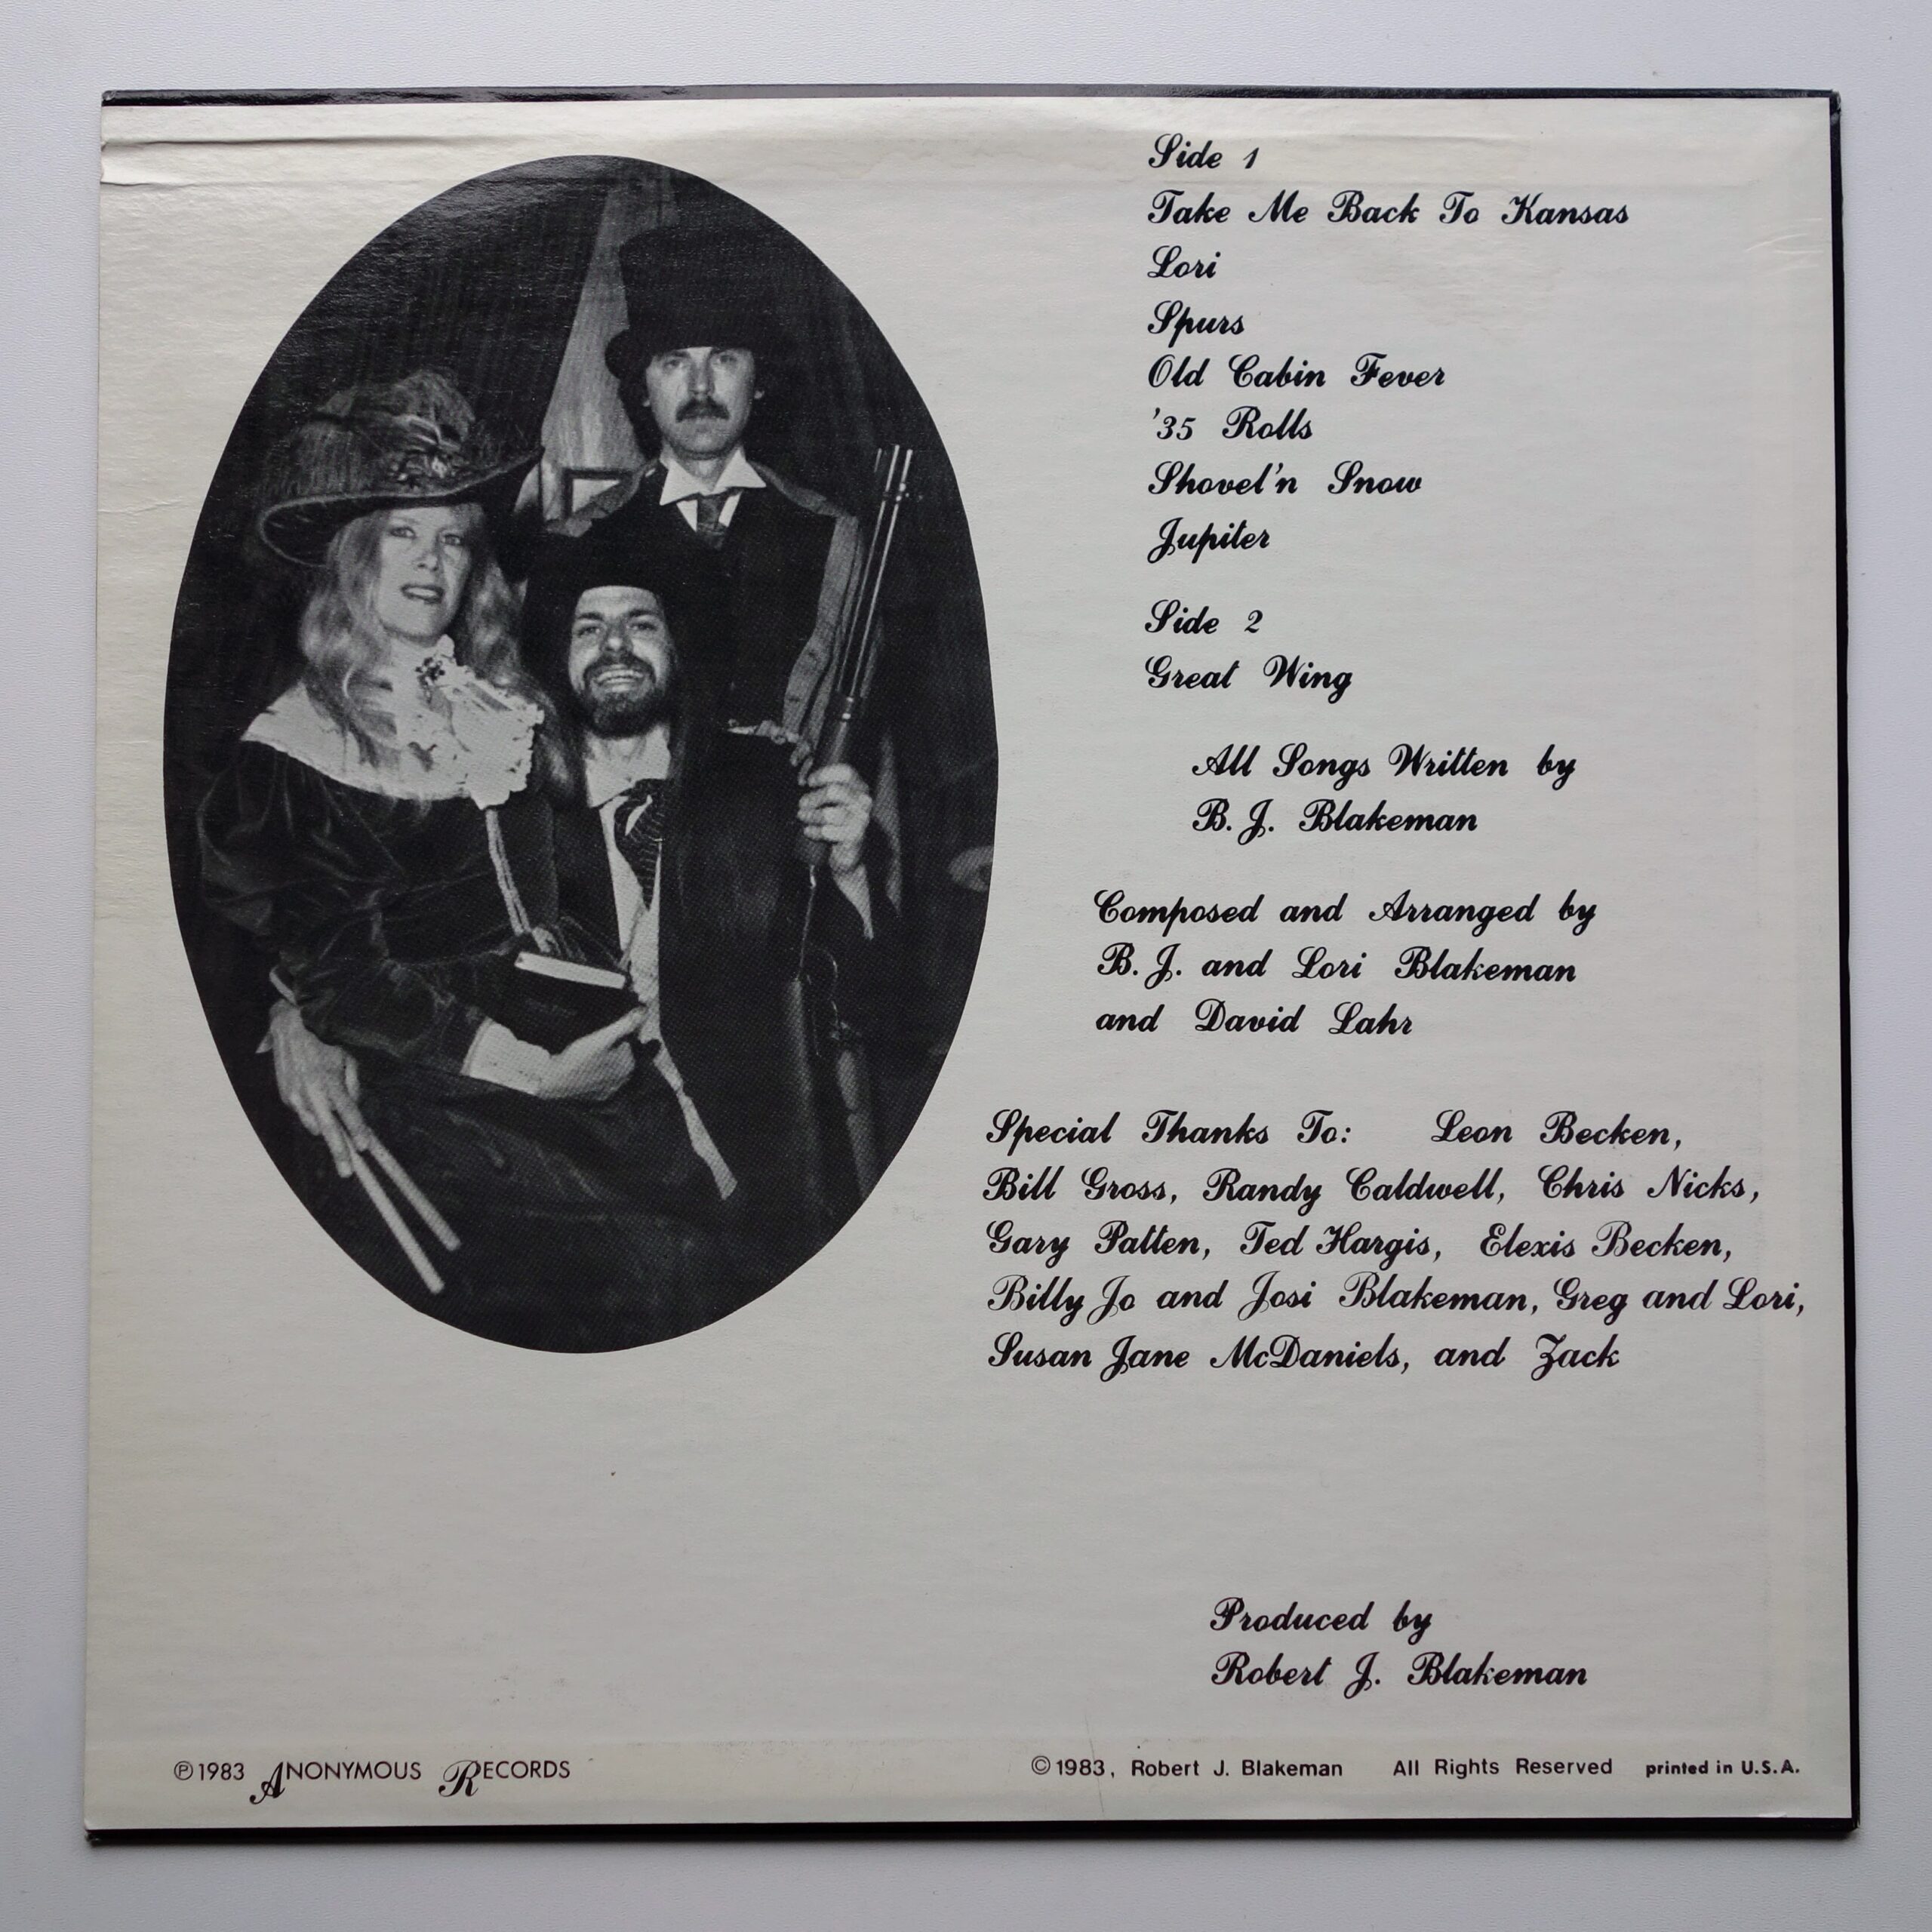 Side 1
Take Me Back To Kansas
Lori
Spurs
Old Cabin Fever
'35 Rolls
Shovel'n Snow
Jupiter
Side 2
Great Wing
All Songs Written by
B. J. Blakeman
Composed and Arranged by
B. J. and Lori Blakeman
and David Lahr
Special Thanks To: Leon Becken,
Bill Gross, Randy Caldwell, Chris Nicks,
Gary Patten, Ted Hargis, Elexis Becken,
Billy Jo and Josi Blakeman, Greg and Lori,
Susan Jane McDaniels, and Zack
Produced by
Robert J. Blakeman
℗1983 ANONYMOUS RECORDS
©1983, Robert J. Blakeman All Rights Reserved printed in U.S.A.